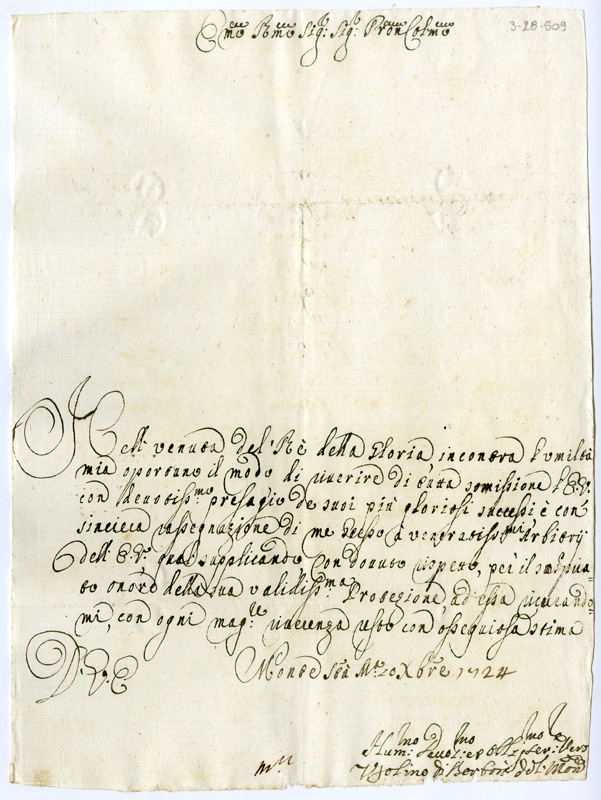 3-28-509
Emo Rmo Sig: Sig: Pron Colmo
Nell venuta del Rè della Gloria incontra l'umiltà
mia oportuno il modo di riverire di tutta somissione l'E.V.
con devotissmo presagio de suoi più gloriosi successi è con
sincera rassegnazione di me stesso a veneratissmi Arbitrij
dell' E.V. qual supplicando con donuto rispeto, per il sospira-
to onore della sua validissma Protezione, ad essa riverando-
mi, con ogni magre riverenza resto con ossequiosa stima
D. V. E
Monte Sta Ma 20 Xbre 1724
Hummo Devotmo et Obligmo Serre Vero
di Borbon del Monte